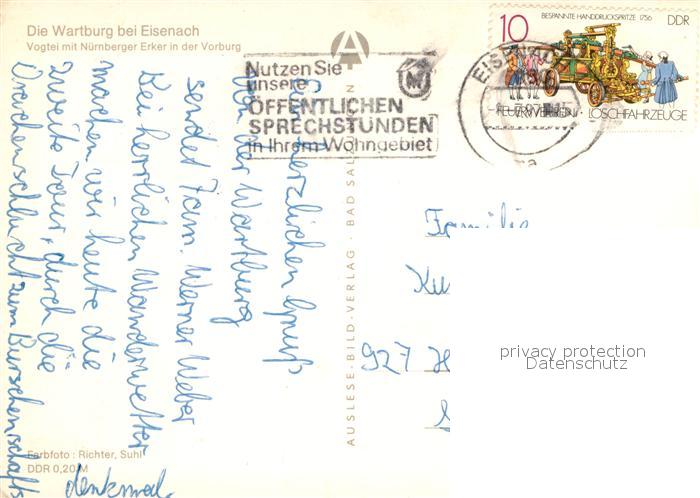 Die Wartburg bei Eisenach
Vogtei mit Nürnberger Erker in der Vorburg
Nutzen Sie
unsere
ÖFFENTLICHEN
SPRECHSTUNDEN
in Ihrem Wohngebiet
EISENACH
10
BESPANNTE HANDDRUCKSPRITZE 1756
DDR
FEUERWEHREN · LÖSCHFAHRZEUGE
herzlichen Gruß
von der Wartburg
sendet Fam. Werner Weber
Bei herrlichen Wanderwetter
machen wir heute die
zweite Tour, durch die
Drachenschlucht zum Burschenschafts
denkmal.
AUSLESE-BILD-VERLAG · BAD SAL
Familie
Ku
927 H
privacy protection
Datenschutz
Farbfoto: Richter, Suhl
DDR 0,20 M